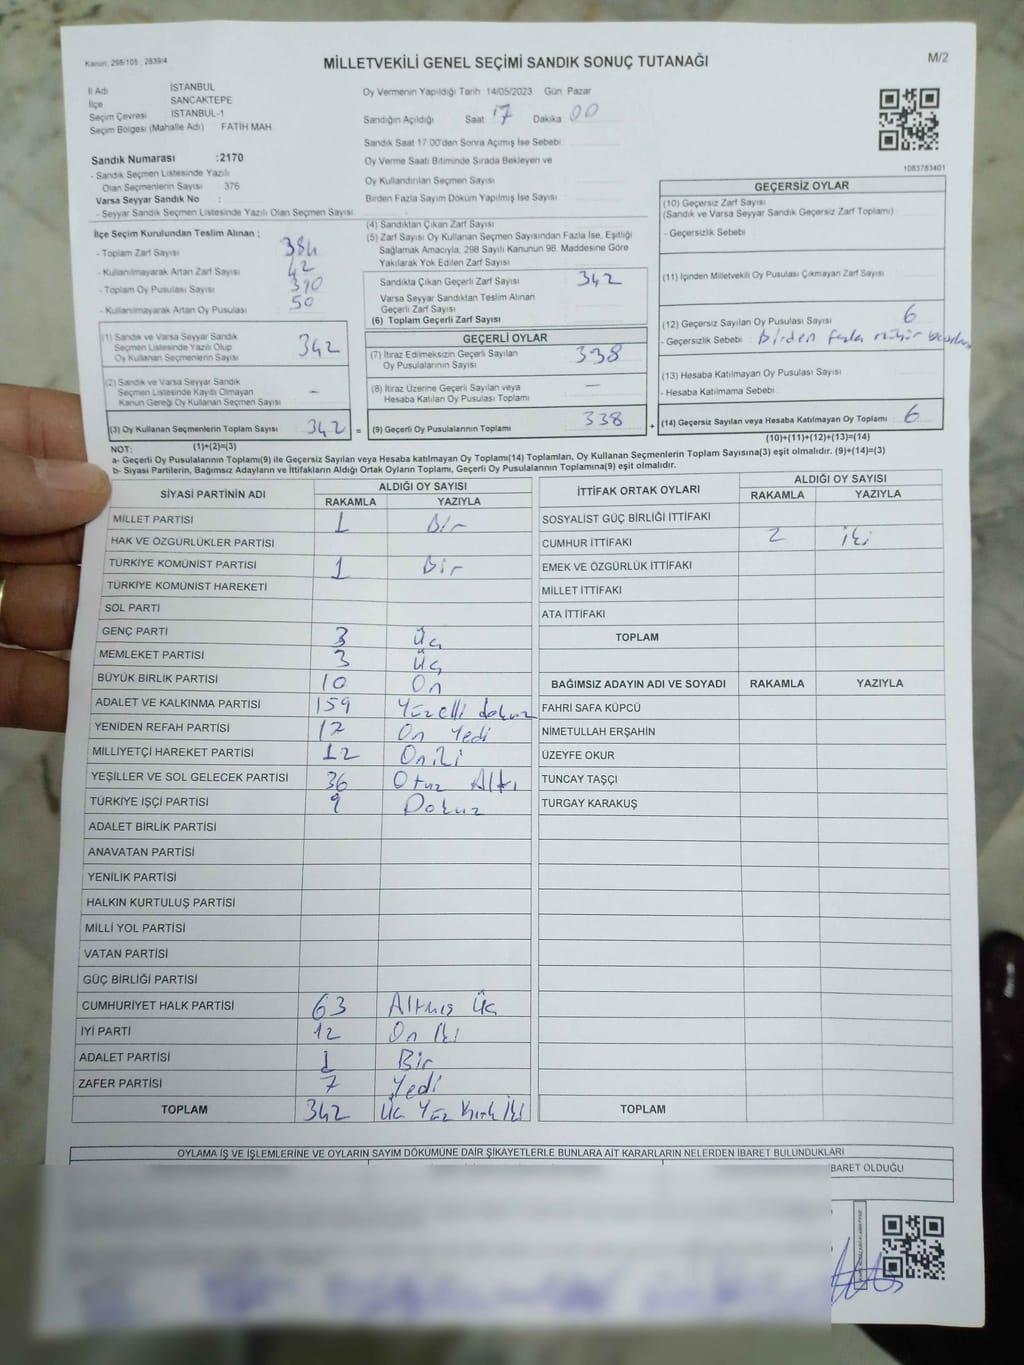 Kanun: 298/105 ; 2839/4
MİLLETVEKİLİ GENEL SEÇİMİ SANDIK SONUÇ TUTANAĞI
M/2
İl Adı İSTANBUL
İlçe SANCAKTEPE
Seçim Çevresi İSTANBUL-1
Seçim Bölgesi (Mahalle Adı) FATİH MAH.
Sandık Numarası :2170
- Sandık Seçmen Listesinde Yazılı
Olan Seçmenlerin Sayısı : 376
Varsa Seyyar Sandık No :
- Seyyar Sandık Seçmen Listesinde Yazılı Olan Seçmen Sayısı:
İlçe Seçim Kurulundan Teslim Alınan ;
- Toplam Zarf Sayısı 384
- Kullanılmayarak Artan Zarf Sayısı 42
- Toplam Oy Pusulası Sayısı 390
- Kullanılmayarak Artan Oy Pusulası 50
(1) Sandık ve Varsa Seyyar Sandık
Seçmen Listesinde Yazılı Olup
Oy Kullanan Seçmenlerin Sayısı 342
(2) Sandık ve Varsa Seyyar Sandık
Seçmen Listesinde Kayıtlı Olmayan
Kanun Gereği Oy Kullanan Seçmen Sayısı -
(3) Oy Kullanan Seçmenlerin Toplam Sayısı 342 =
Oy Vermenin Yapıldığı Tarih 14/05/2023 Gün: Pazar
Sandığın Açıldığı Saat 17 Dakika 00
Sandık Saat 17:00'den Sonra Açılmış İse Sebebi:
Oy Verme Saati Bitiminde Sırada Bekleyen ve
Oy Kullandırılan Seçmen Sayısı
Birden Fazla Sayım Döküm Yapılmış İse Sayısı
(4) Sandıktan Çıkan Zarf Sayısı
(5) Zarf Sayısı Oy Kullanan Seçmen Sayısından Fazla İse, Eşitliği
Sağlamak Amacıyla, 298 Sayılı Kanunun 98. Maddesine Göre
Yakılarak Yok Edilen Zarf Sayısı
Sandıkta Çıkan Geçerli Zarf Sayısı 342
Varsa Seyyar Sandıktan Teslim Alınan
Geçerli Zarf Sayısı
(6) Toplam Geçerli Zarf Sayısı
GEÇERLİ OYLAR
(7) İtiraz Edilmeksizin Geçerli Sayılan
Oy Pusulalarının Sayısı 338
(8) İtiraz Üzerine Geçerli Sayılan veya
Hesaba Katılan Oy Pusulası Toplamı -
(9) Geçerli Oy Pusulalarının Toplamı 338 +
1083783401
GEÇERSİZ OYLAR
(10) Geçersiz Zarf Sayısı
(Sandık ve Varsa Seyyar Sandık Geçersiz Zarf Toplamı)
- Geçersizlik Sebebi
(11) İçinden Milletvekili Oy Pusulası Çıkmayan Zarf Sayısı
(12) Geçersiz Sayılan Oy Pusulası Sayısı 6
- Geçersizlik Sebebi : Birden fazla mühür
(13) Hesaba Katılmayan Oy Pusulası Sayısı
- Hesaba Katılmama Sebebi
(14) Geçersiz Sayılan veya Hesaba Katılmayan Oy Toplamı 6
NOT: (1)+(2)=(3)
(10)+(11)+(12)+(13)=(14)
a- Geçerli Oy Pusulalarının Toplamı(9) ile Geçersiz Sayılan veya Hesaba katılmayan Oy Toplamı(14) Toplamları, Oy Kullanan Seçmenlerin Toplam Sayısına(3) eşit olmalıdır. (9)+(14)=(3)
b- Siyasi Partilerin, Bağımsız Adayların ve İttifakların Aldığı Ortak Oyların Toplamı, Geçerli Oy Pusulalarının Toplamına(9) eşit olmalıdır.
SİYASİ PARTİNİN ADI ALDIĞI OY SAYISI
RAKAMLA YAZIYLA
MİLLET PARTİSİ 1 Bir
HAK VE ÖZGÜRLÜKLER PARTİSİ
TÜRKİYE KOMÜNİST PARTİSİ 1 Bir
TÜRKİYE KOMÜNİST HAREKETİ
SOL PARTİ
GENÇ PARTİ 3 Üç
MEMLEKET PARTİSİ 3 Üç
BÜYÜK BİRLİK PARTİSİ 10 On
ADALET VE KALKINMA PARTİSİ 159 Yüzelli dokuz
YENİDEN REFAH PARTİSİ 17 On Yedi
MİLLİYETÇİ HAREKET PARTİSİ 12 Oniki
YEŞİLLER VE SOL GELECEK PARTİSİ 36 Otuz Altı
TÜRKİYE İŞÇİ PARTİSİ 9 Dokuz
ADALET BİRLİK PARTİSİ
ANAVATAN PARTİSİ
YENİLİK PARTİSİ
HALKIN KURTULUŞ PARTİSİ
MİLLİ YOL PARTİSİ
VATAN PARTİSİ
GÜÇ BİRLİĞİ PARTİSİ
CUMHURİYET HALK PARTİSİ 63 Altmış Üç
İYİ PARTİ 12 On İki
ADALET PARTİSİ 1 Bir
ZAFER PARTİSİ 7 Yedi
TOPLAM 342 Üç Yüz Kırk İki
İTTİFAK ORTAK OYLARI ALDIĞI OY SAYISI
RAKAMLA YAZIYLA
SOSYALİST GÜÇ BİRLİĞİ İTTİFAKI
CUMHUR İTTİFAKI 2 iki
EMEK VE ÖZGÜRLÜK İTTİFAKI
MİLLET İTTİFAKI
ATA İTTİFAKI
TOPLAM
BAĞIMSIZ ADAYIN ADI VE SOYADI RAKAMLA YAZIYLA
FAHRİ SAFA KÜPCÜ
NİMETULLAH ERŞAHİN
ÜZEYFE OKUR
TUNCAY TAŞÇI
TURGAY KARAKUŞ
TOPLAM
OYLAMA İŞ VE İŞLEMLERİNE VE OYLARIN SAYIM DÖKÜMÜNE DAİR ŞİKAYETLERLE BUNLARA AİT KARARLARIN NELERDEN İBARET BULUNDUKLARI
İBARET OLDUĞU